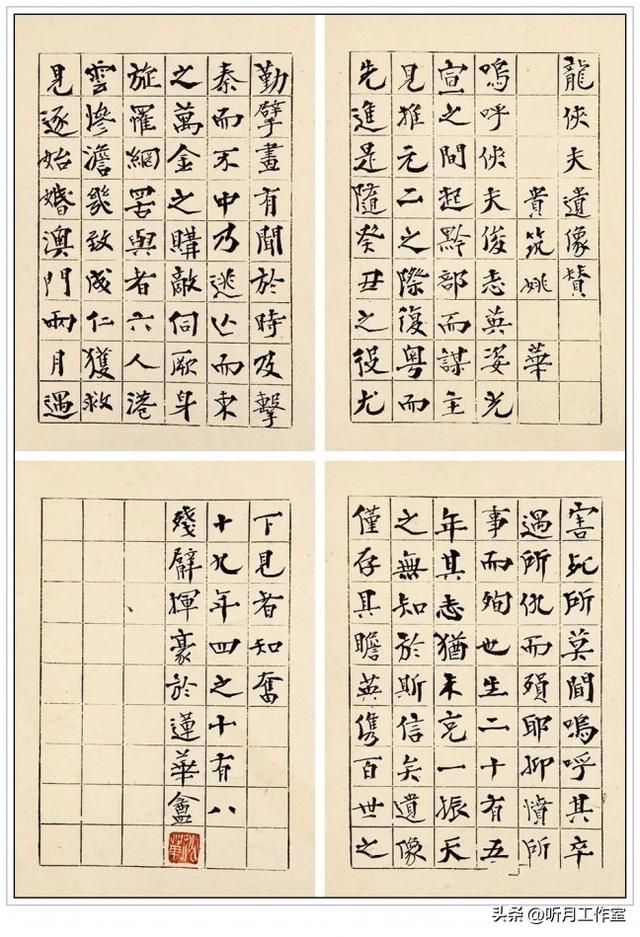 龍俠夫遺像贊
貴筑姚華
嗚呼俠夫俊志英姿光
宣之間起黔部而謀主
見推元二之際復粵而
先進是隨癸丑之役尤
勤擘畫有聞於時及擊
秦而不中乃逃亾而東
之萬金之購敵伺厥身
旋罹網罟與者六人港
雲慘澹幾致成仁獲救
見逐始婚澳門兩月遇
害死所莫間嗚呼其卒
遇所仇而殞耶抑憤所
事而殉也生二十有五
年其志猶未克一振天
之無知於斯信矣遺像
僅存具瞻英儁百世之
下見者知奮
十九年四之十有八
殘臂揮豪於蓮華盦
姚華
头条 @听月工作室